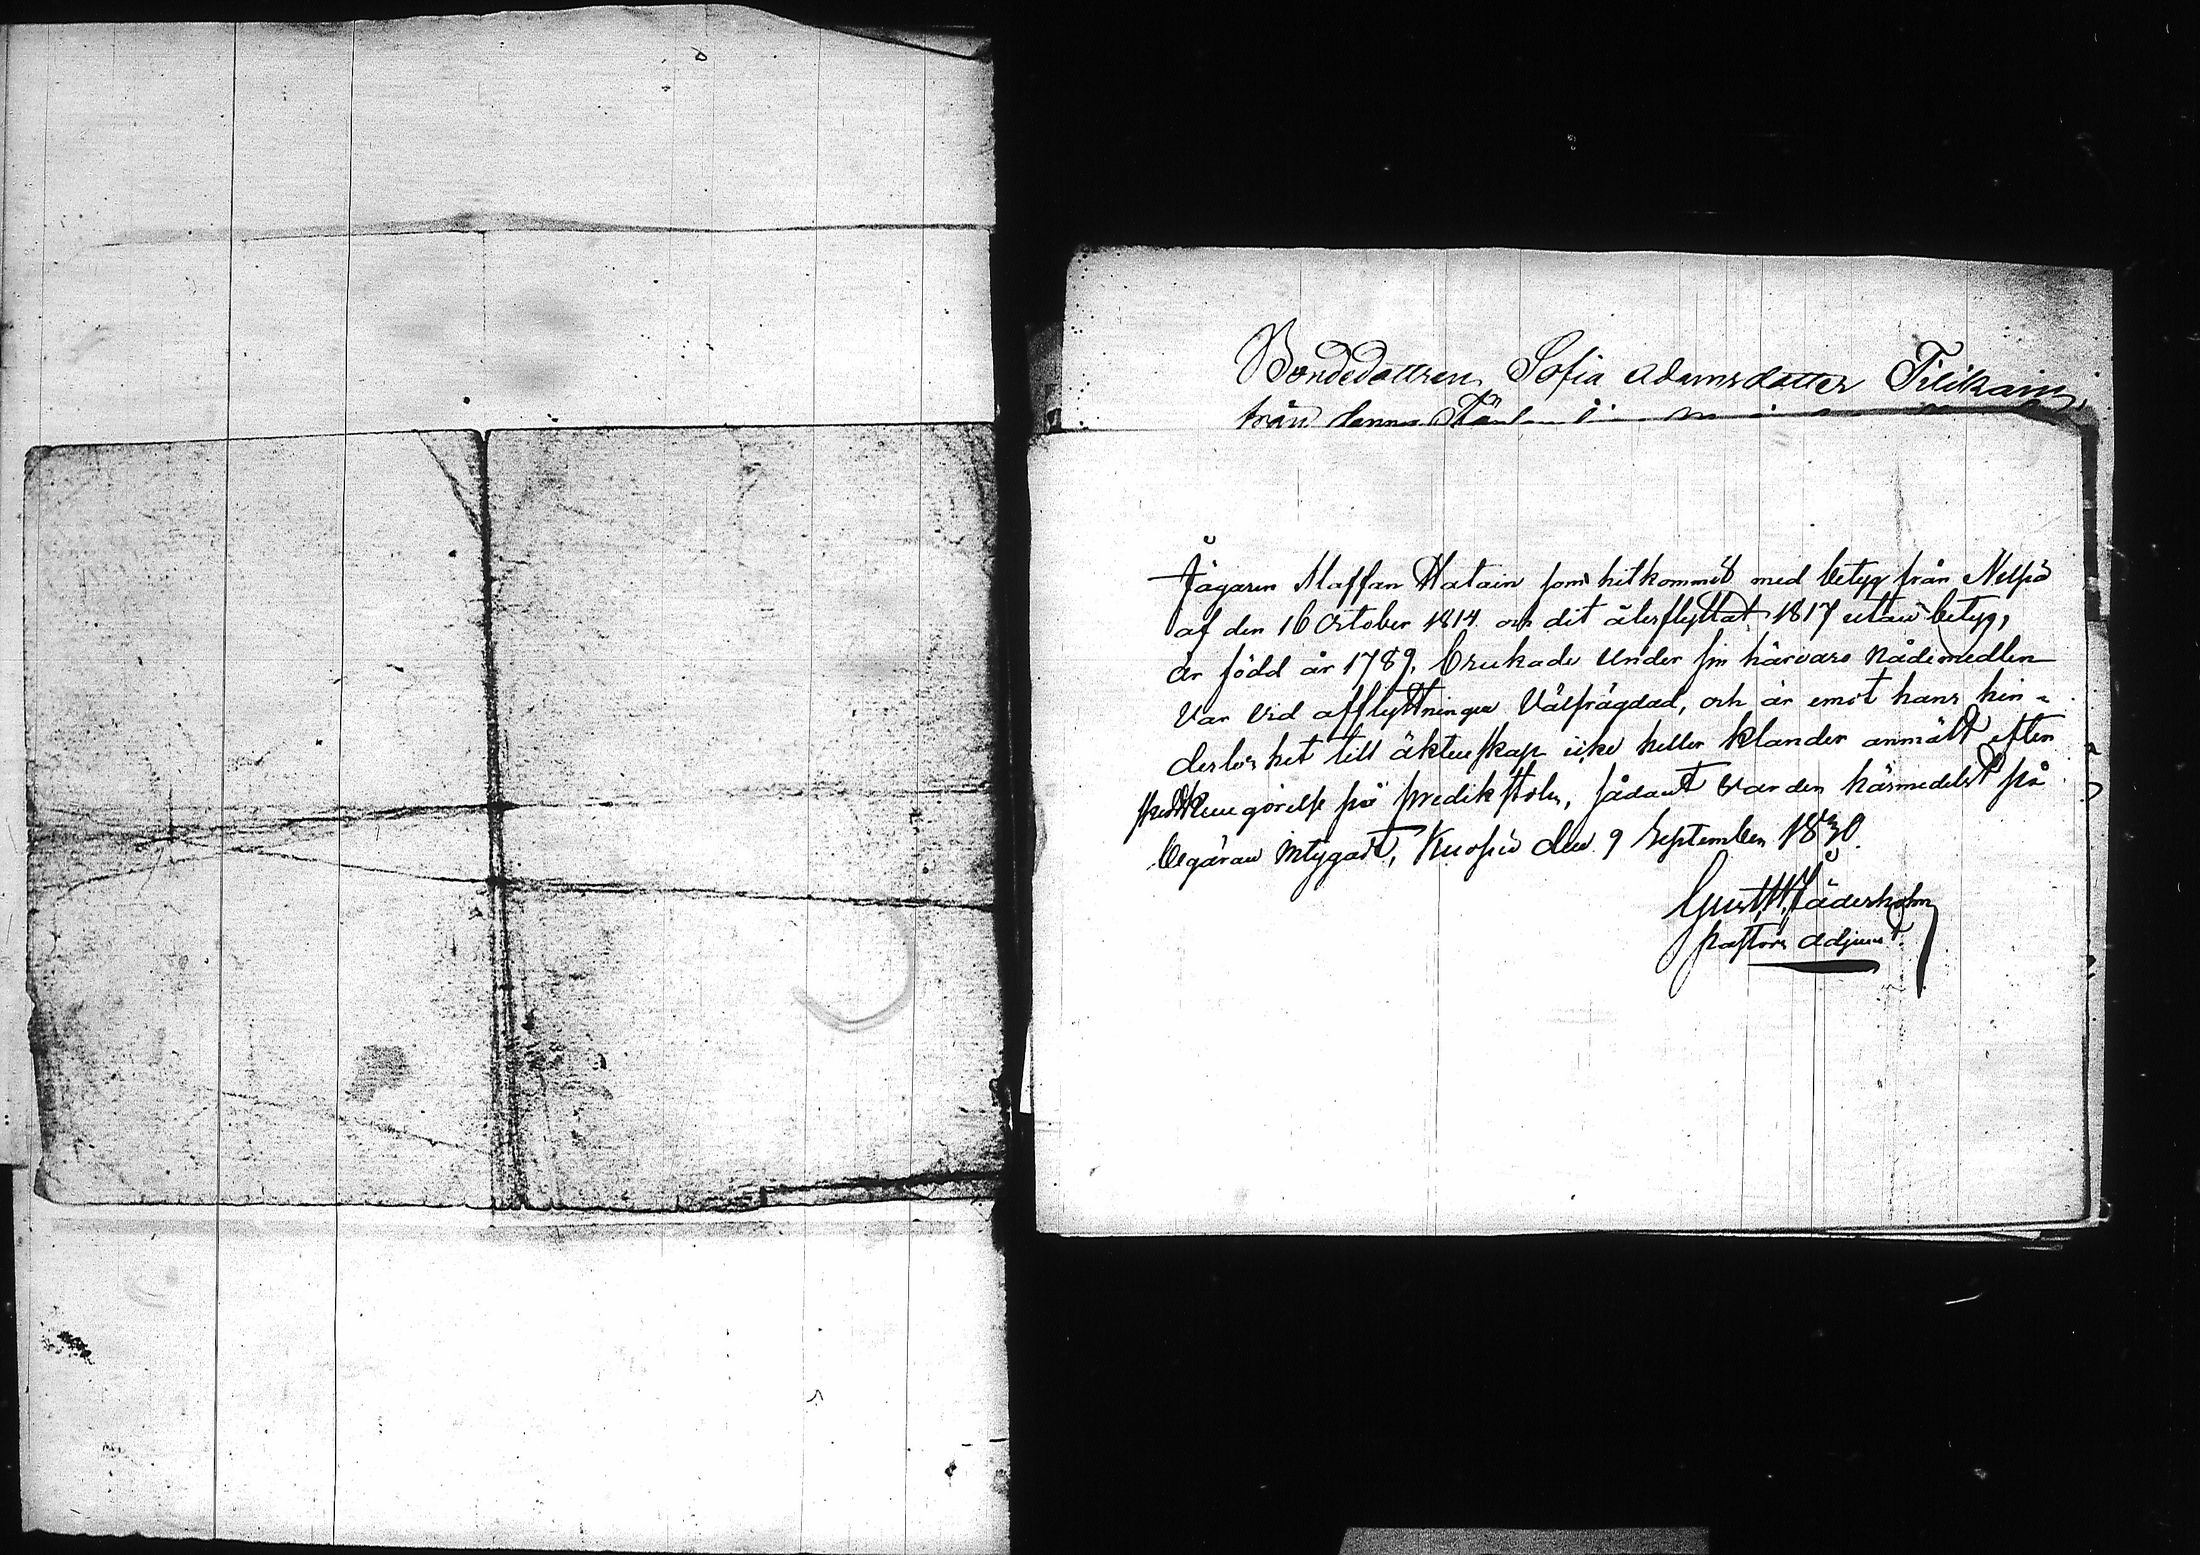 Bondedottren Sofia Adamsdotter Tilikain,
från denna
Jägaren Staffan Hatain som hitkommit med betyg från Nilsiä
af den 16 October 1814 och dit återflyttat 1817 utan betyg,
är född år 1789, brukade under sin härvaro nådemedlen
var vid afflyttningen välfrägdad, och är emot hans hin-
derlöshet till äktenskap icke heller klander anmält efter
skedd kungörelse på predikstolen, sådant varder härmedelst på
begäran intygadt, Kuopio den 9 September 1830.
Gust. W. Jäderholm
pastors adjunct.